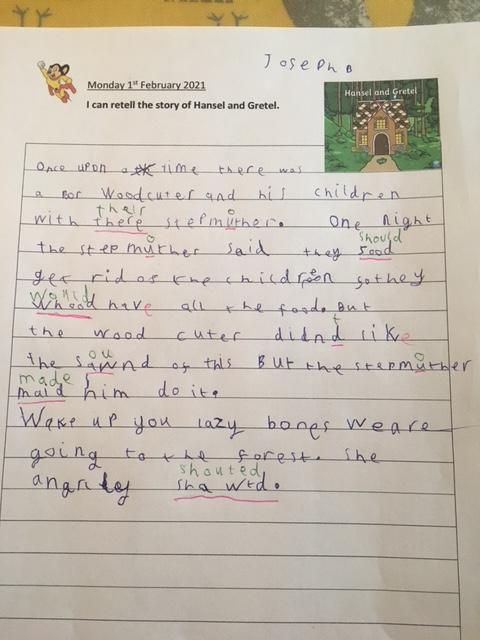 Joseph B
Monday 1st February 2021
I can retell the story of Hansel and Gretel.
Hansel and Gretel
Once upon a time there was
a por Woodcuter and his children
their
with there stepmuther. One night
o
should
the stepmuther said they sood
o
get rid of the children so they
would
whood have all the food. But
the wood cuter didnd like
t
ou
o
the sawnd of this But the stepmuther
made
maid him do it.
Wake up you lazy bones We are
going to the forest. she
shouted
angrily shawtd.